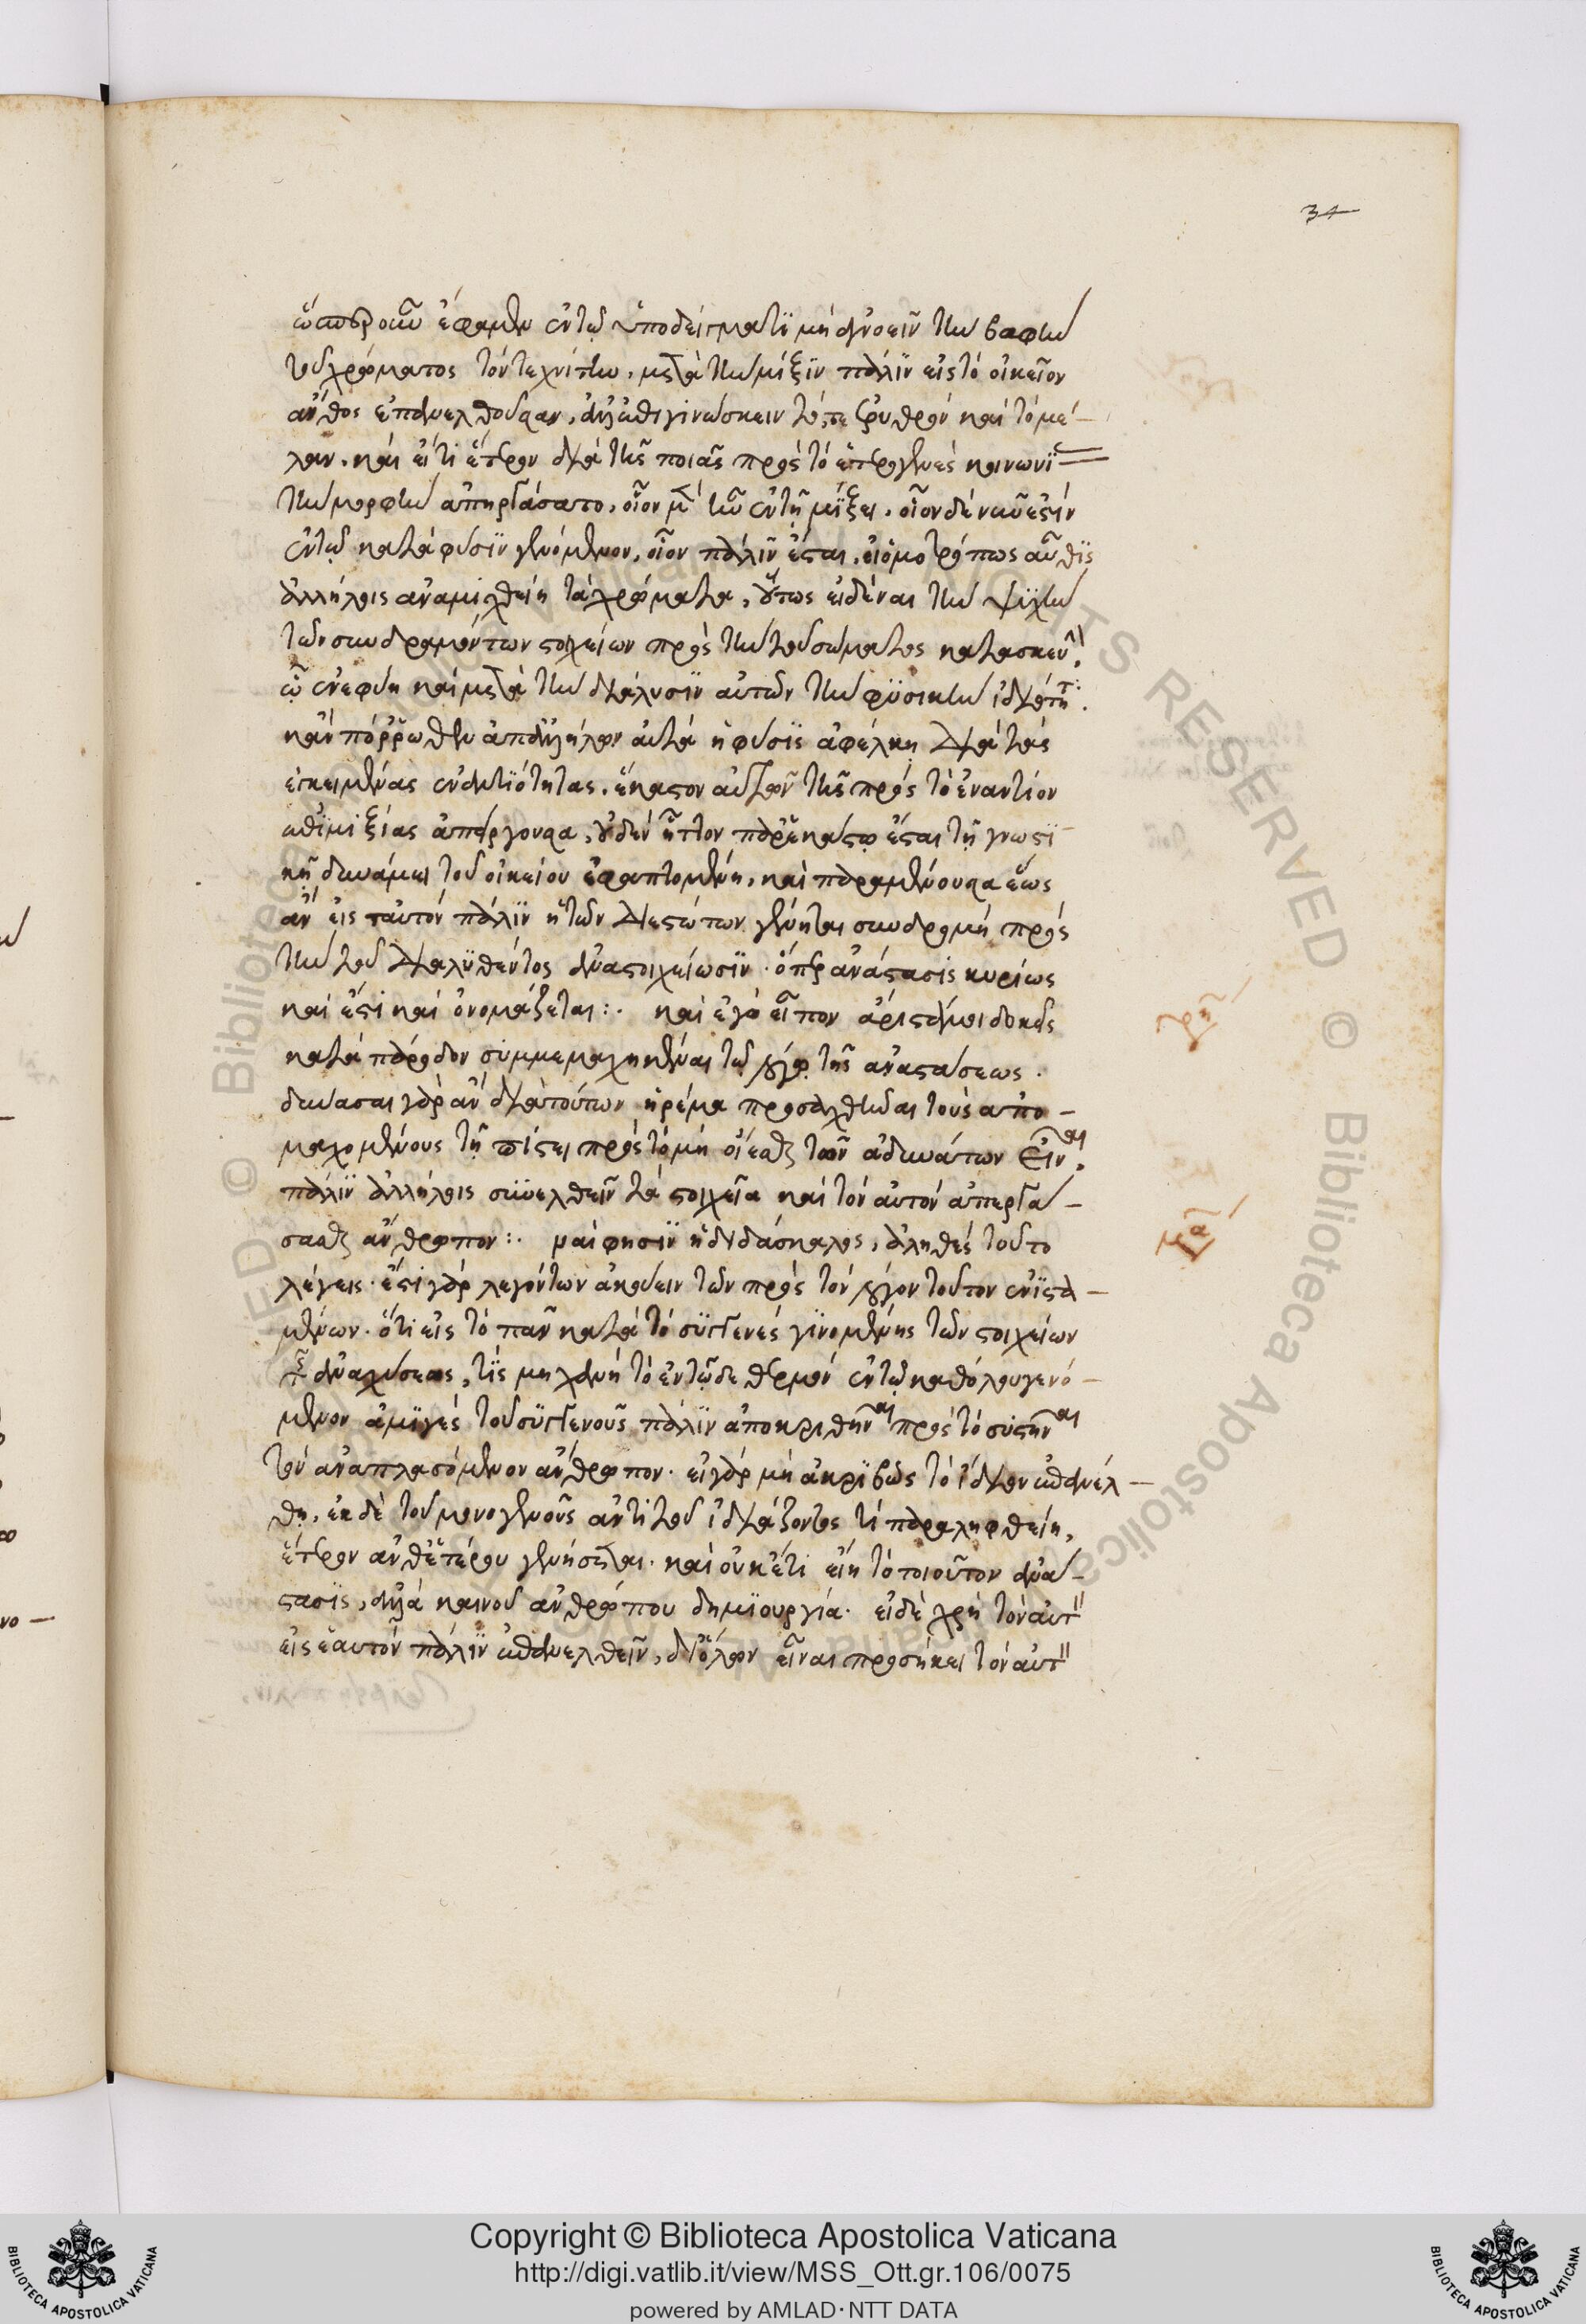 34
ὥσπερ οὖν ἔφαμεν ἐν τῷ ὑποδείγματι μὴ ἀγνοεῖν τὴν βαφὴν
τοῦ χρώματος τὸν τεχνίτην, μετὰ τὴν μίξιν πάλιν εἰς τὸ οἰκεῖον
ἄνθος ἐπανελθοῦσαν, ἀλλὰ γινώσκειν τό τε ἐρυθρὸν καὶ τὸ μέ-
λαν. καὶ εἴ τι ἕτερον διὰ τῆς ποιᾶς πρὸς τὸ ἑτερογενὲς κοινωνί
τὴν μορφὴν ἀπηργάσατο, οἷον μὲν ἦν ἐν τῇ μίξει. οἷον δὲ νῦν ἐστὶν
ἐν τῷ κατὰ φύσιν γενόμενον, οἷον πάλιν ἔσται, εἰ ὁμοτρόπως αὖθις
ἀλλήλοις ἀναμιχθείη τὰ χρώματα, οὕτως εἰδέναι τὴν ψυχὴν
τῶν συνδραμόντων στοιχείων πρὸς τὴν τοῦ σώματος κατασκευ
ᾧ ἐνεφύη καὶ μετὰ τὴν διάλυσιν αὐτῶν τὴν φυσικὴν ἰδιότη
κἂν πόρρωθεν ἀπ' ἀλλήλων αὐτὰ ἡ φύσις ἀφέλκῃ διὰ τὰς
ἐγκειμένας ἐναντιότητας, ἕκαστον αὐτῶν τῆς πρὸς τὸ ἐναντίον
ἐπιμιξίας ἀπείργουσα, οὐδὲν ἧττον παρ' ἑκάστῳ ἔσται τῇ γνωστι
κῇ δυνάμει τοῦ οἰκείου ἐφαπτομένη, καὶ παραμένουσα ἕως
ἂν εἰς ταὐτὸν πάλιν ἡ τῶν διεστώτων γένηται συνδρομὴ πρὸς
τὴν τοῦ διαλυθέντος ἀναστοιχείωσιν. ὅπερ ἀνάστασις κυρίως
καὶ ἔστι καὶ ὀνομάζεται :. καὶ ἐγὼ εἶπον ἄριστά μοι δοκεῖς
κατὰ πάροδον συμμεμαχηκέναι τῷ λόγῳ τῆς ἀναστάσεως.
δύνασαι γὰρ ἂν διὰ τούτων ἠρέμα προσαχθῆναι τοὺς ἀπο-
μαχομένους τῇ πίστει πρὸς τὸ μὴ οἴεσθαι τῶν ἀδυνάτων εἶναι,
πάλιν ἀλλήλοις συνελθεῖν τὰ στοιχεῖα καὶ τὸν αὐτὸν ἀπεργά-
σασθαι ἄνθρωπον :. ναί φησιν ἡ διδάσκαλος, ἀληθὲς τοῦτο
λέγεις. ἔστι γὰρ λεγόντων ἀκούειν τῶν πρὸς τὸν λόγον τοῦτον ἐνιστα-
μένων. ὅτι εἰς τὸ πᾶν κατὰ τὸ συγγενὲς γινομένης τῶν στοιχείων
τῆς ἀναχύσεως, τίς μηχανὴ τὸ ἐν τῷδε θερμὸν ἐν τῷ καθόλου γενό-
μενον ἀμιγὲς τοῦ συγγενοῦς πάλιν ἀποκριθῆναι πρὸς τὸ συστῆναι
τὸν ἀναπλασσόμενον ἄνθρωπον. εἰ γὰρ μὴ ἀκριβῶς τὸ ἴδιον ἐπανέλ-
θῃ, ἐκ δὲ τοῦ μονογενοῦς ἀντὶ τοῦ ἰδιάζοντός τι παραληφθείη,
ἕτερον ἀνθ' ἑτέρου γενήσεται. καὶ οὐκέτι εἴη τὸ τοιοῦτον ἀνά-
στασις, ἀλλὰ καινοῦ ἀνθρώπου δημιουργία. εἰ δὲ χρὴ τὸν αὐτ
εἰς ἑαυτὸν πάλιν ἐπανελθεῖν, δι' ὅλων εἶναι προσήκει τὸν αὐτ
Copyright © Biblioteca Apostolica Vaticana
http://digi.vatlib.it/view/MSS_Ott.gr.106/0075
powered by AMLAD·NTT DATA
BIBLIOTECA APOSTOLICA VATICANA
BIBLIOTECA APOSTOLICA VATICANA